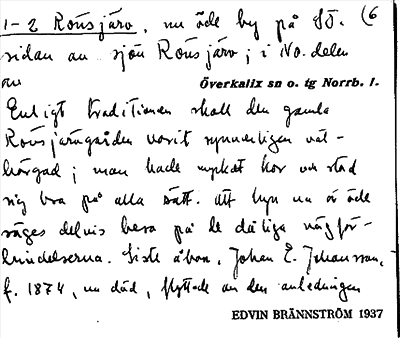 1-2 Rousjärv, nu öde by på SÖ. (6
sidan av sjön Rousjärv; i No. delen
av
Överkalix sn o. tg Norrb. l.
Enligt traditionen skall den gamla
Rousjärvgården varit synnerligen väl-
bärgad; man hade mycket kor och stod
sig bra på alla sätt. Att byn nu är öde
säges delvis bero på de dåliga vägför-
bindelserna. Siste åbon, Johan E. Johansson,
f. 1874, nu död, flyttade av den anledningen
EDVIN BRÄNNSTRÖM 1937